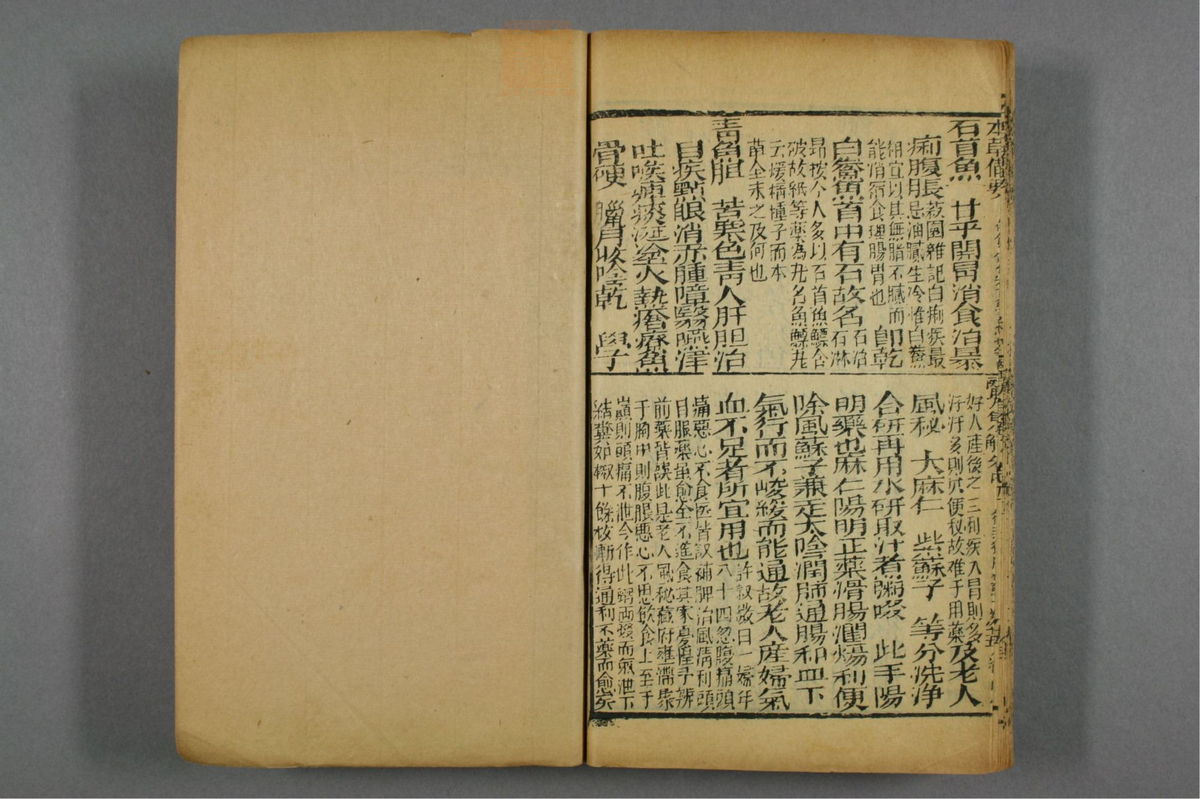 石首魚 甘平開胃消食治暴
痢腹脹
菽園雜記白痢疾最
忌油膩生冷惟白鯗
相宜以其無脂不膩而
能消宿食理腸胃也
即乾
白鯗魚首中有石故名
石治
石淋
昂按今人多以石首魚鰾合
破故紙等藥為丸名魚鰾丸
云煖精種子而本
草全未之及何也
青魚膽 苦寒色青入肝胆治
目疾點眼消赤腫障翳嚥津
吐喉痺痰涎塗火熱瘡療魚
骨硬 臘月收陰乾
好人產後
汗汗多則大便秘故难于用藥
及老人
風秘 大麻仁 紫蘇子 等分洗净
合研再用水研取汁煮粥啜 此手陽
明藥也麻仁陽明正藥滑腸潤燥利便
除風蘇子兼走太陰潤肺通腸和血下
氣行而不峻緩而能通故老人產婦氣
血不足者所宜用也
許叔微曰一婦年
八十四忽腹痛頭
痛惡心不食医皆议補脾治風清利頭
目服藥虽愈全不進食其家憂惶予辨
前藥皆誤此是老人風秘藏府壅滯聚
于胸中則腹脹惡心不思飲食上至于
巔則頭痛不清今作此粥两啜而氣泄下
結糞如椒十餘枚漸得通利不藥而愈矣